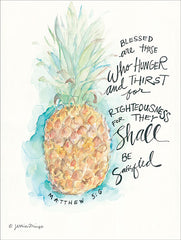 BLESSED
are those
WHO HUNGER
and THIRST
for
RIGHTEOUSNESS
FOR THEY
Shall
BE
Satisfied
MATTHEW 5:6